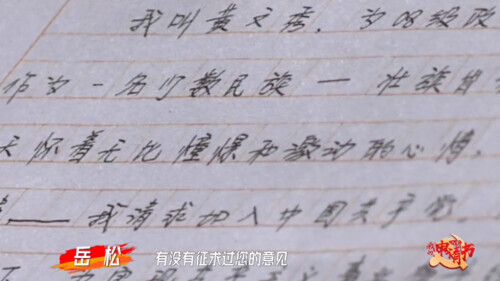 我叫黄文秀，为08级政
作为一名少数民族——壮族自
怀着无比憧憬和激动的心情，
——我请求加入中国共产党。
岳松 有没有征求过您的意见
申请书